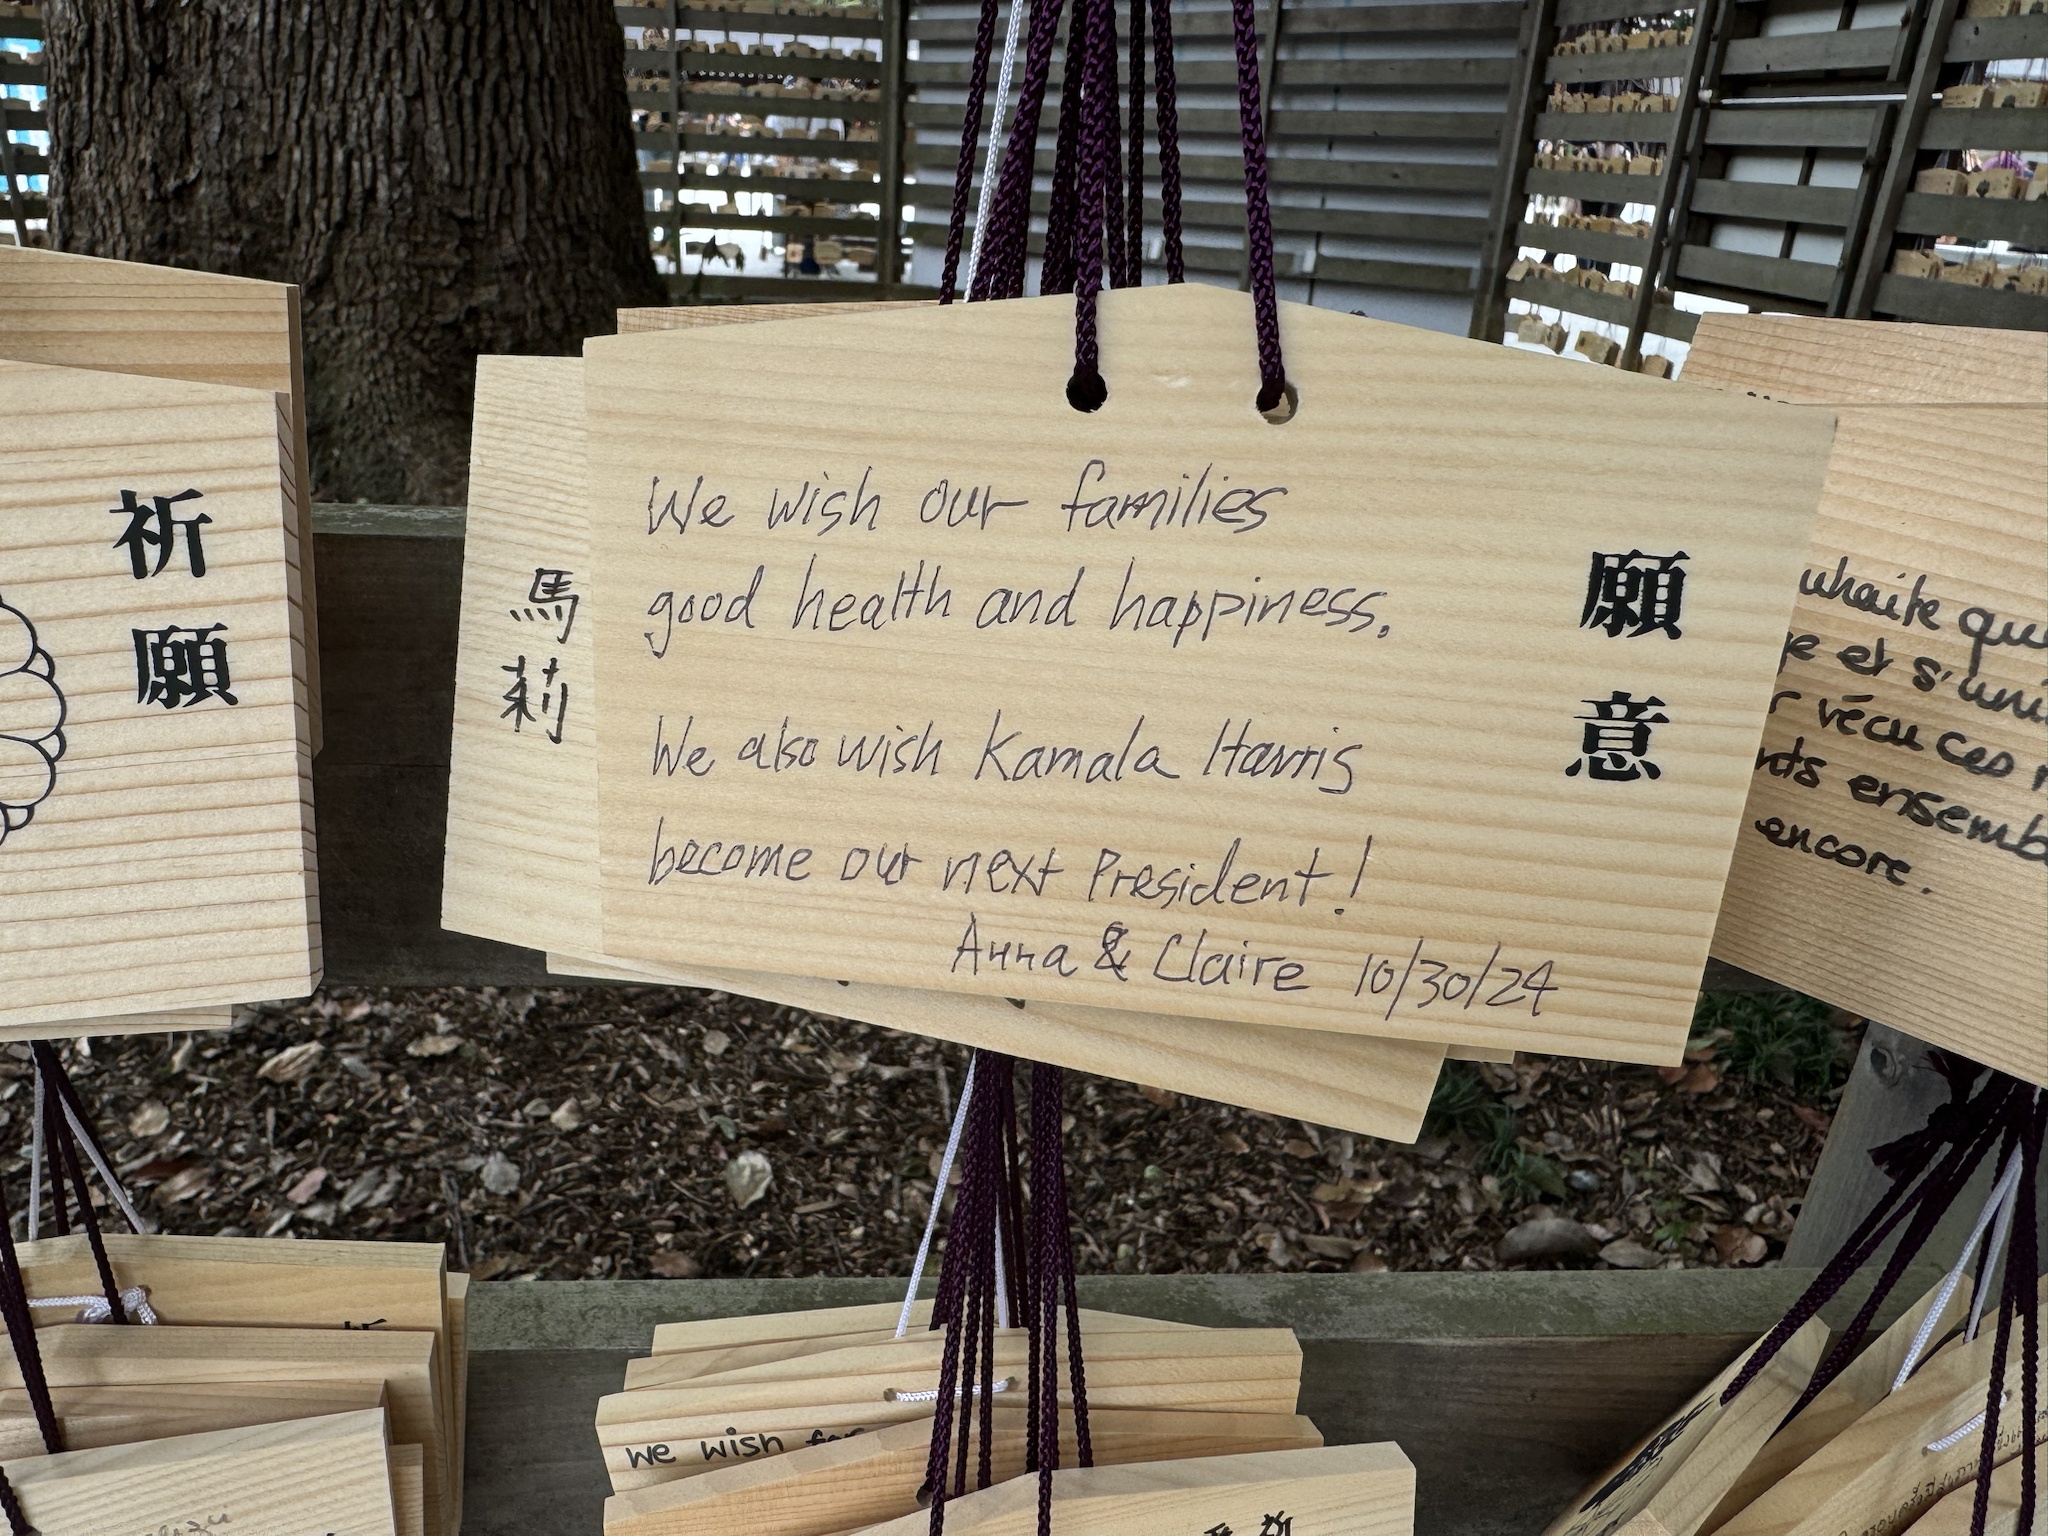 祈願
馬莉
We wish our families
good health and happiness.
We also wish Kamala Harris
become our next President!
Anna & Claire 10/30/24
願意
uhaite qu
et s'uni
vécu ces
ensemb
encore.
we wish for